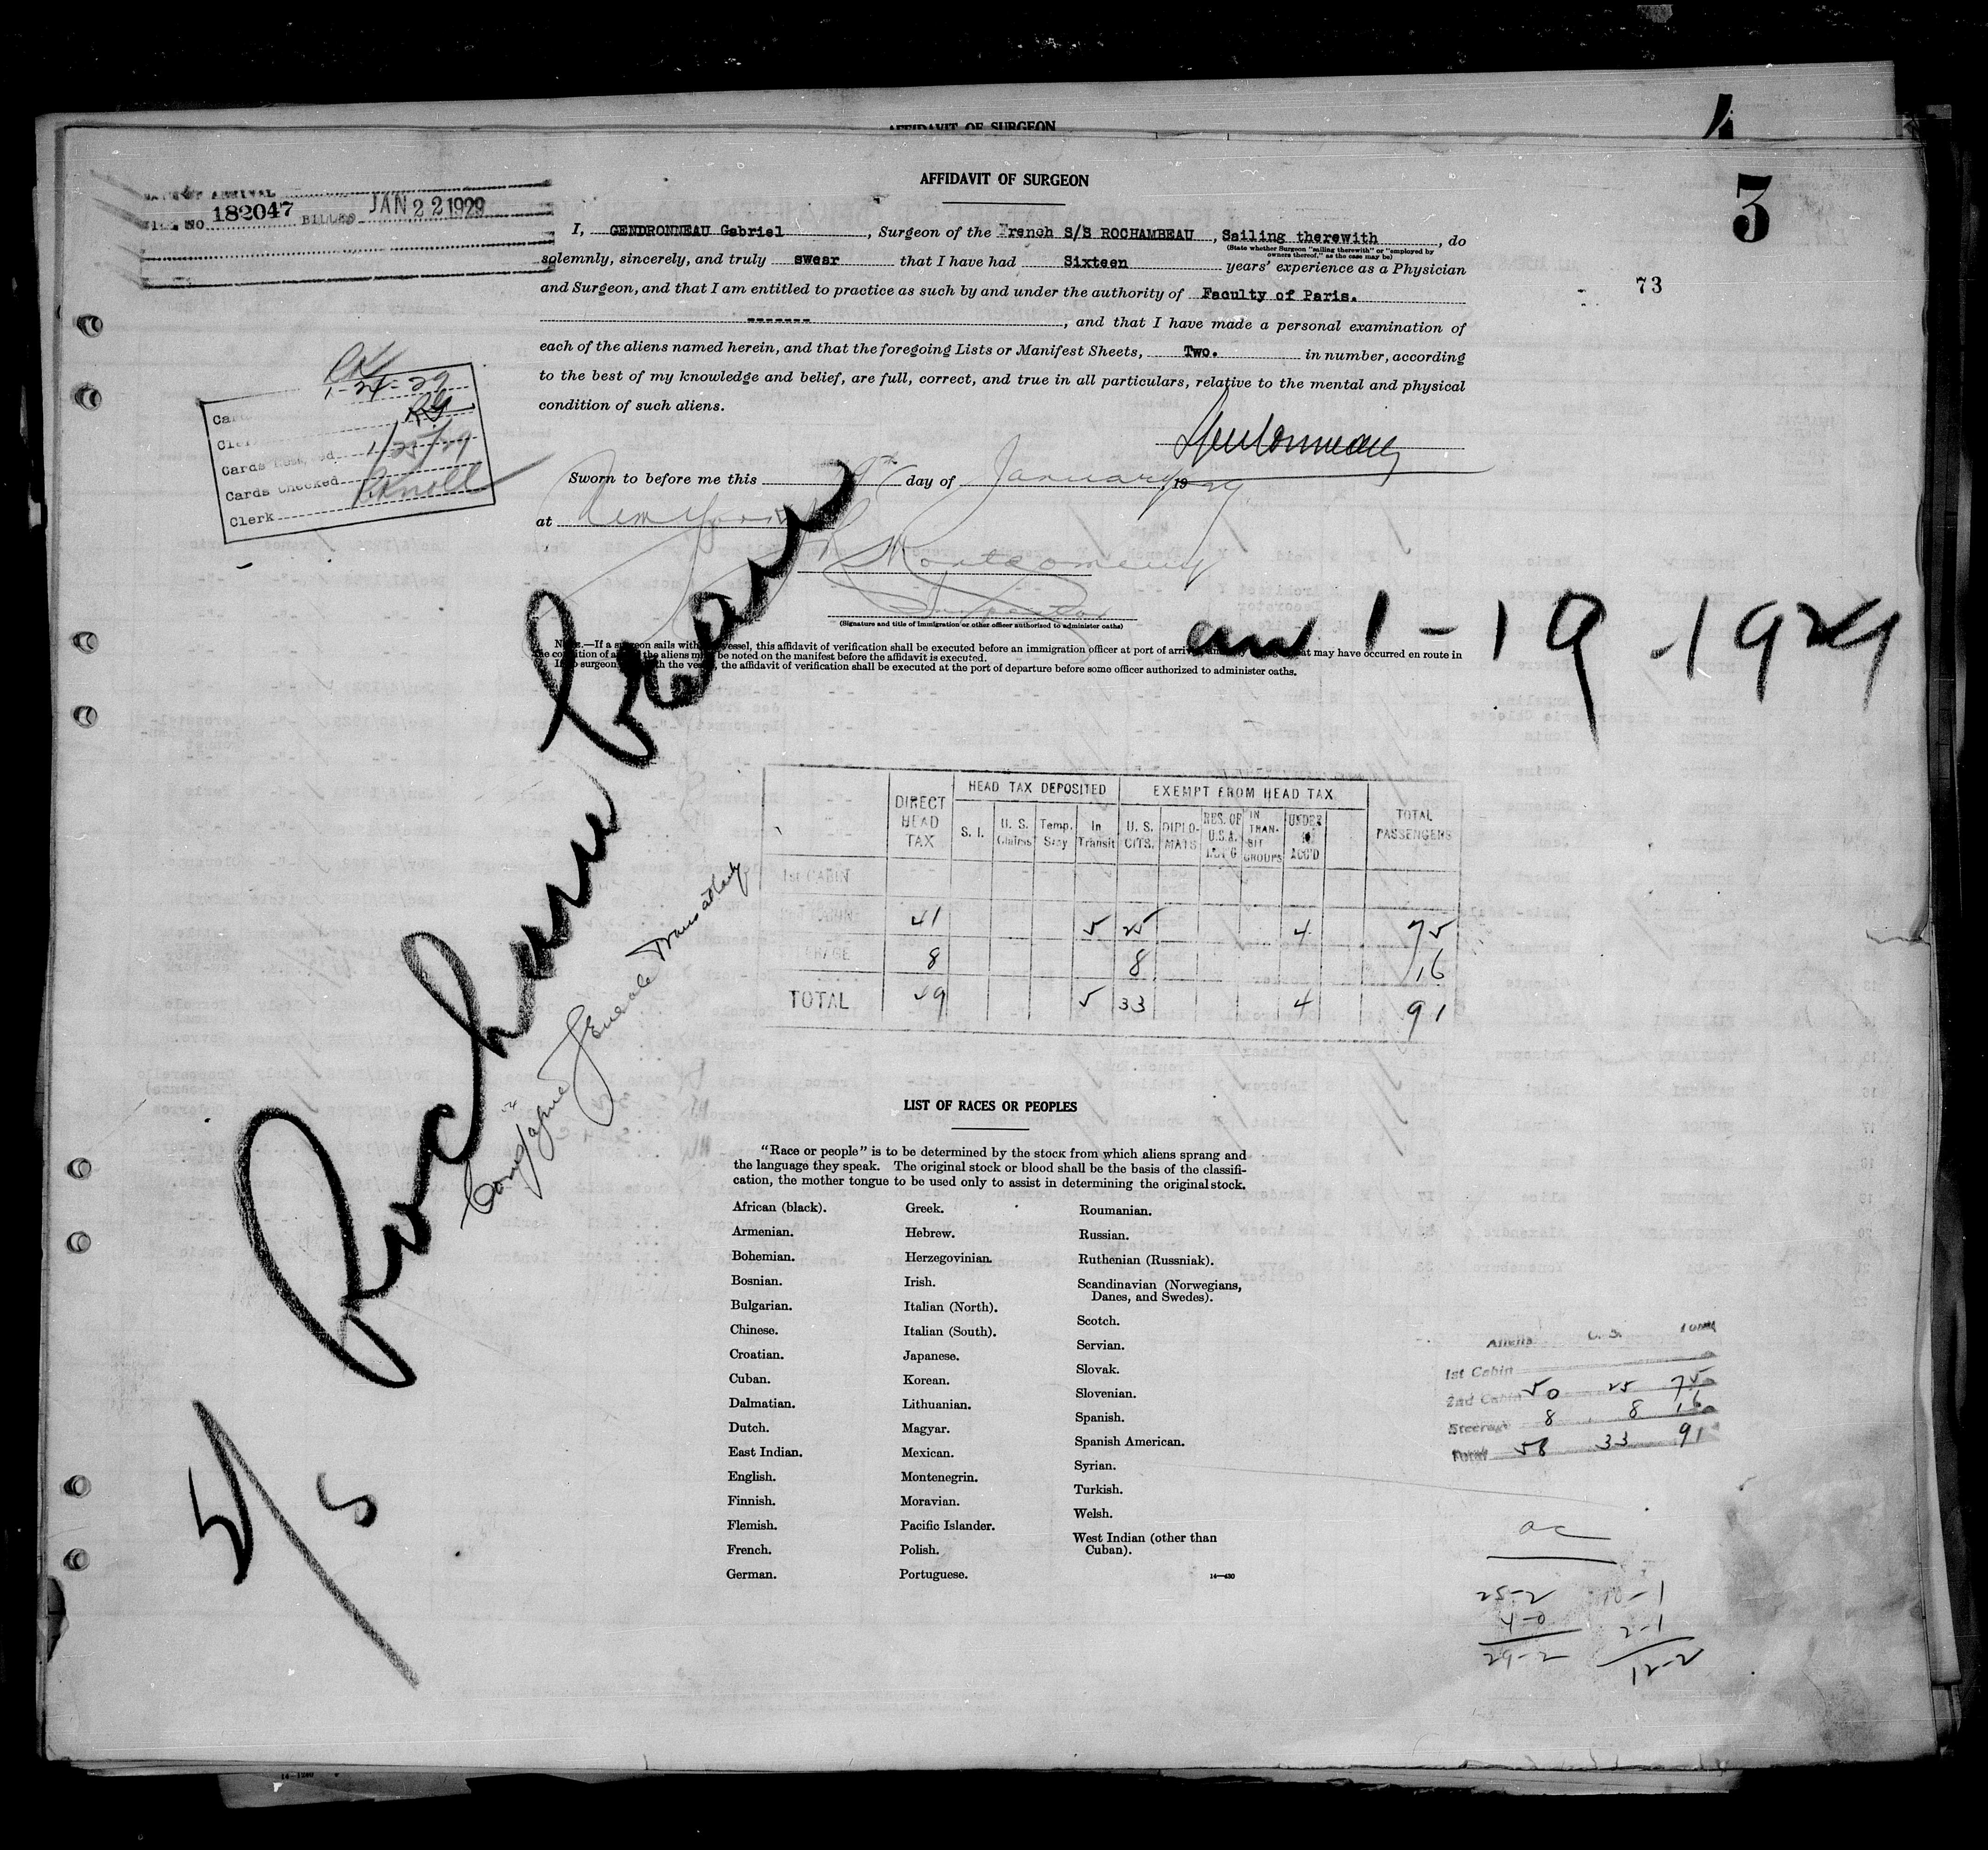 AFFIDAVIT OF SURGEON
4
AFFIDAVIT OF SURGEON
3
73
DATE OF ARRIVAL
FILE NO 182047 BILLED JAN 22 1929
I, GENDRONNEAU Gabriel, Surgeon of the French S/S ROCHAMBEAU, Sailing therewith, do
(State whether Surgeon "sailing therewith" or "employed by
owners thereof," as the case may be)
solemnly, sincerely, and truly swear that I have had Sixteen years' experience as a Physician
and Surgeon, and that I am entitled to practice as such by and under the authority of Faculty of Paris.
-------, and that I have made a personal examination of
each of the aliens named herein, and that the foregoing Lists or Manifest Sheets, Two. in number, according
to the best of my knowledge and belief, are full, correct, and true in all particulars, relative to the mental and physical
condition of such aliens.
OK
1-24-29
RG
Cards 1/25/29
Cards Checked
Clerk Knoll
Sworn to before me this day of January, 1929
at New York
R Montgomery
Inspector
(Signature and title of immigration or other officer authorized to administer oaths)
NOTE.—If a surgeon sails with vessel, this affidavit of verification shall be executed before an immigration officer at port of arrival that may have occurred en route in
the condition of the aliens must be noted on the manifest before the affidavit is executed.
If no surgeon with the vessel, the affidavit of verification shall be executed at the port of departure before some officer authorized to administer oaths.
arr 1-19-1929
Rochambeau
Compagnie Generale Transatlantique
S/S
HEAD TAX DEPOSITED EXEMPT FROM HEAD TAX
DIRECT HEAD TAX S. I. U. S. Claims Temp. Stay In Transit U. S. CITS. DIPLO-MATS RES. OF U.S.A. IN TRAN-SIT GROUPS UNDER 16 ACC'D TOTAL PASSENGERS
1st CABIN
2nd CABIN 41 5 25 4 75
STEERAGE 8 8 16
TOTAL 49 5 33 4 91
LIST OF RACES OR PEOPLES
"Race or people" is to be determined by the stock from which aliens sprang and
the language they speak. The original stock or blood shall be the basis of the classifi-
cation, the mother tongue to be used only to assist in determining the original stock.
African (black).
Armenian.
Bohemian.
Bosnian.
Bulgarian.
Chinese.
Croatian.
Cuban.
Dalmatian.
Dutch.
East Indian.
English.
Finnish.
Flemish.
French.
German.
Greek.
Hebrew.
Herzegovinian.
Irish.
Italian (North).
Italian (South).
Japanese.
Korean.
Lithuanian.
Magyar.
Mexican.
Montenegrin.
Moravian.
Pacific Islander.
Polish.
Portuguese.
Roumanian.
Russian.
Ruthenian (Russniak).
Scandinavian (Norwegians,
Danes, and Swedes).
Scotch.
Servian.
Slovak.
Slovenian.
Spanish.
Spanish American.
Syrian.
Turkish.
Welsh.
West Indian (other than
Cuban).
14—430
Aliens U. S. Total
1st Cabin
2nd Cabin 50 25 75
Steerage 8 8 16
Total 58 33 91
14-1240